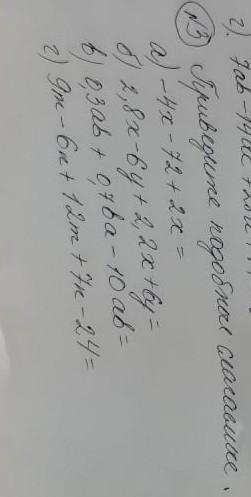 №3 Приведите подобные слагаемые.
а) -4x - 72 + 2x =
б) 2,8x - 6y + 2,2x + 6y =
в) 0,3ab + 0,7ba - 10ab =
г) 9m - 6n + 12m + 7n - 24 =